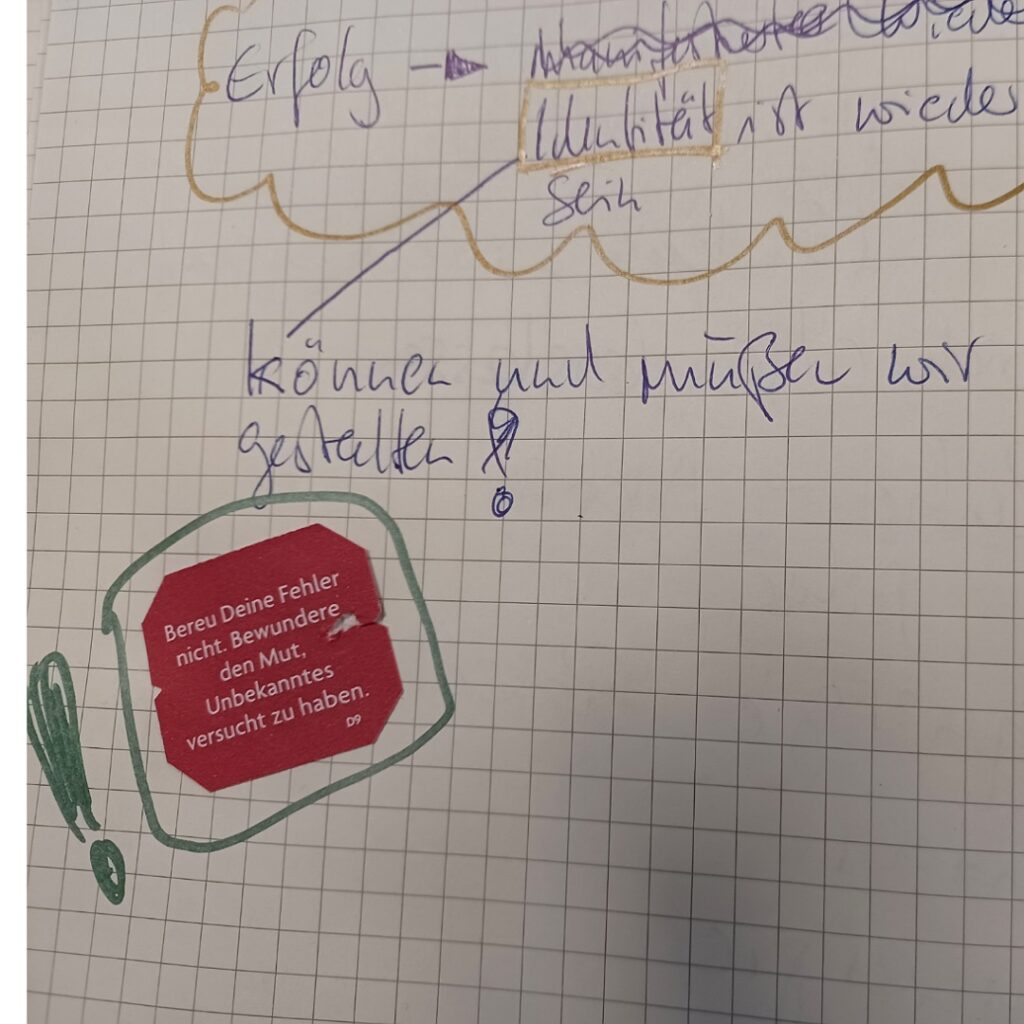 Erfolg →
Identität, ist wieder
sein
können und müßen wir
gestalten !
Bereu Deine Fehler
nicht. Bewundere
den Mut,
Unbekanntes
versucht zu haben.
D9
!